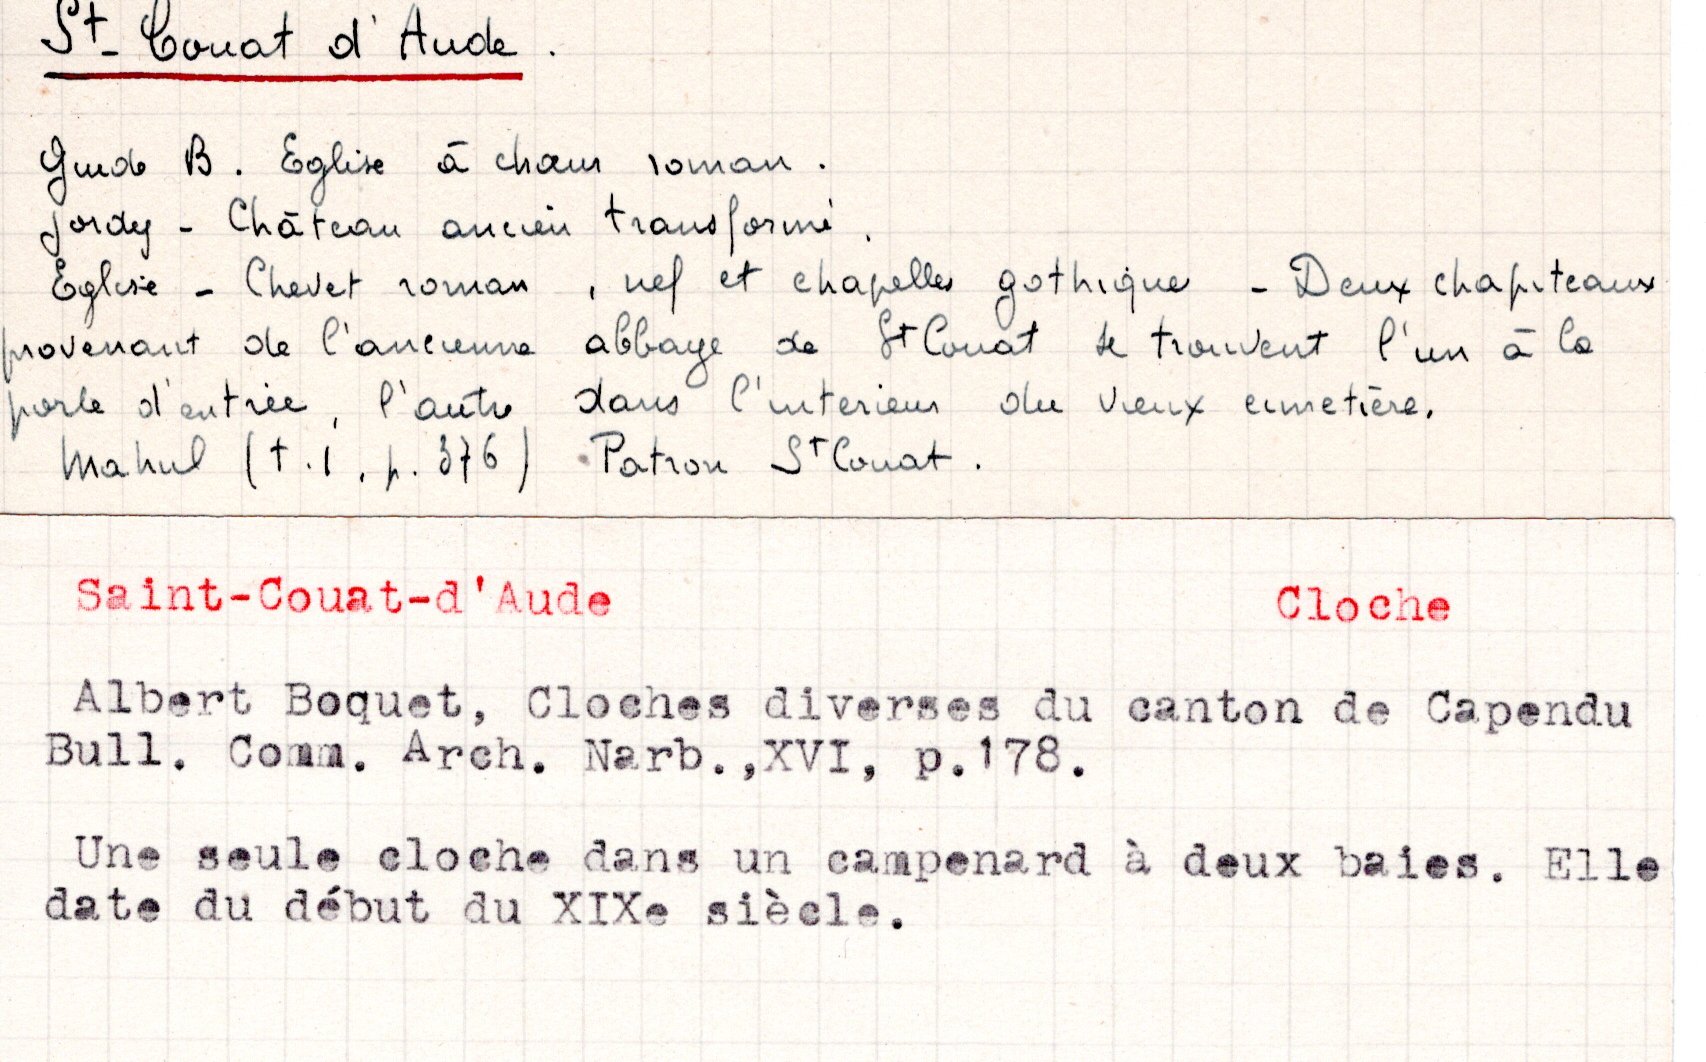 St- Couat d'Aude.
Guide B. Eglise à chœur roman.
Jordy - Château ancien transformé.
Eglise - Chevet roman, nef et chapelles gothiques - Deux chapiteaux
provenant de l'ancienne abbaye de St Couat se trouvent l'un à la
porte d'entrée, l'autre dans l'interieur du vieux cimetière.
Mahul (t.1, p. 376) Patron St Couat.
Saint-Couat-d'Aude Cloche
Albert Boquet, Cloches diverses du canton de Capendu
Bull. Comm. Arch. Narb.,XVI, p.178.
Une seule cloche dans un campenard à deux baies. Elle
date du début du XIXe siècle.